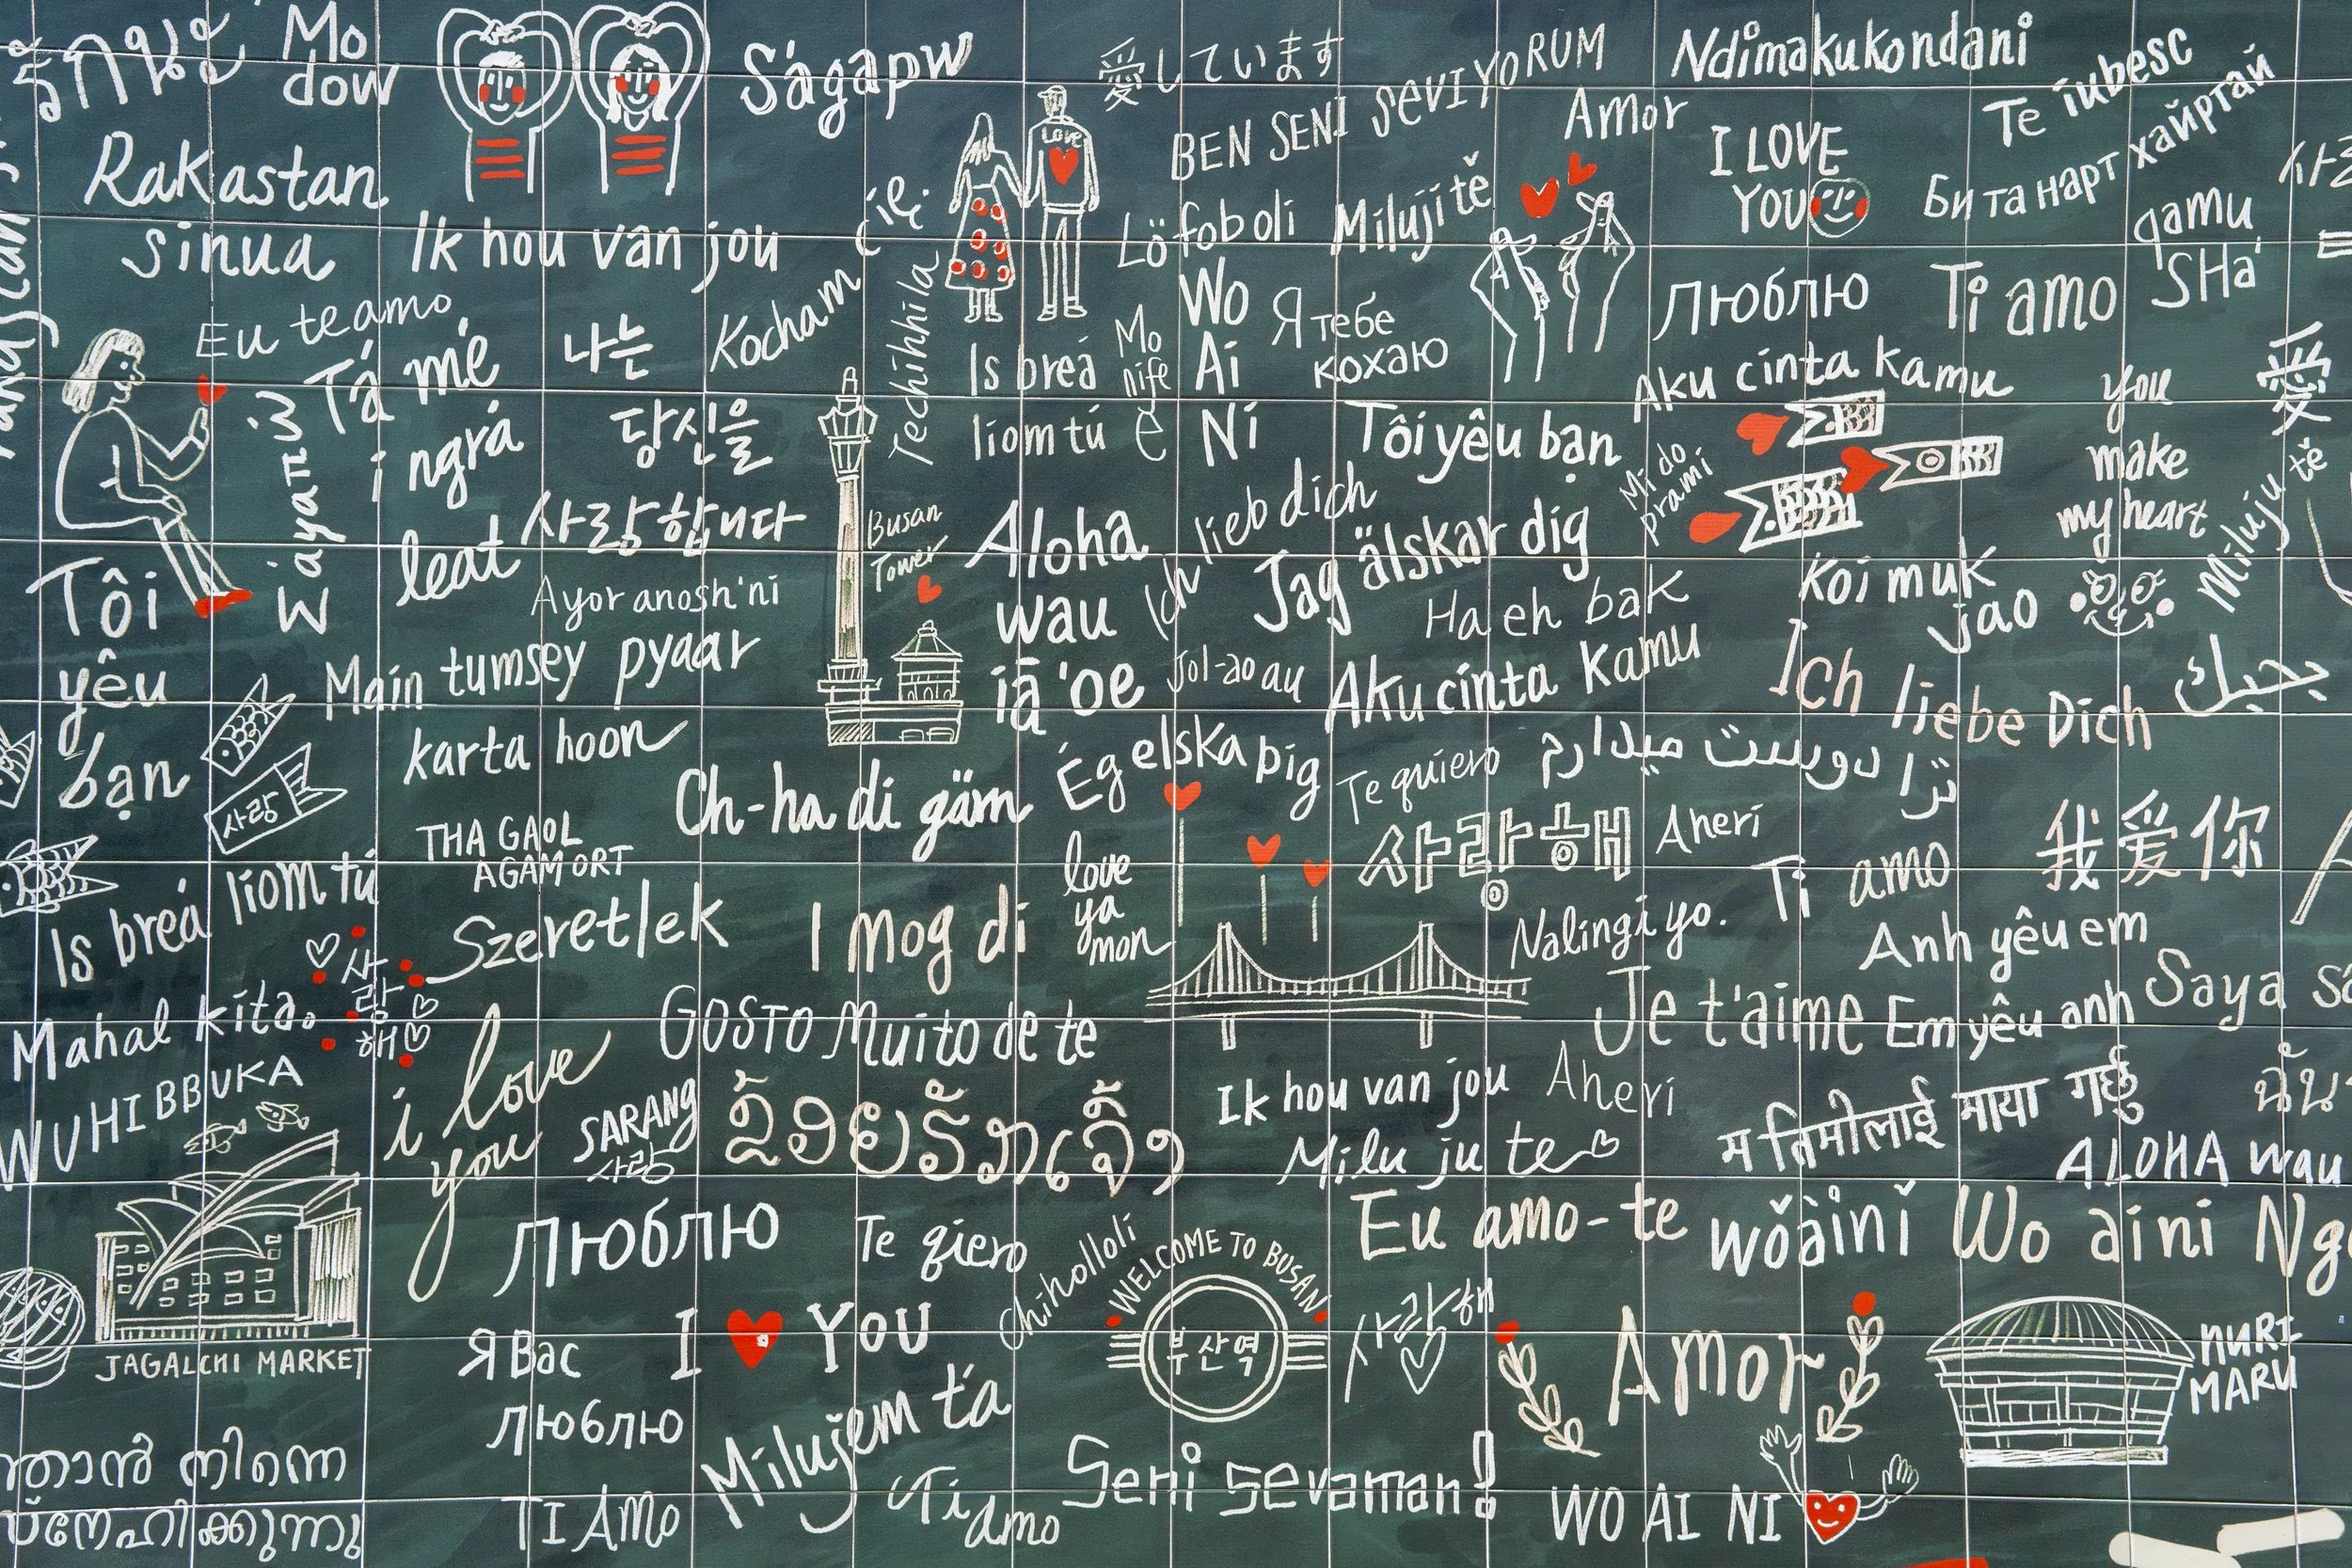 Mo
dow
S'agapw
愛しています
BEN SENI SEVIYORUM
Ndimakukondani
Te iubesc
Amor
I LOVE
YOU
Би та нарт хайртай
Rakastan
sinua
Ik hou van jou
Kocham cię
LOVE
Lö fob oli
Miluji tě
qamu
SHa'
Eu te amo
Tá mé
i ngrá
leat
나는
당신을
사랑합니다
Techihhila
Is breá
liom tú
Mo
nife
e
Wo
Ai
Ni
Я тебе
кохаю
Люблю
Ti amo
Aku cinta kamu
Σ'αγαπώ
Tôi yêu bạn
Mi do
prami
you
make
my heart
愛
Miluju tě
Busan
Tower
Aloha
wau
iā 'oe
Ich lieb dich
Jag älskar dig
Ha eh bak
Koi muk
jao
Tôi
yêu
bạn
Ayor anosh'ni
Main tumsey pyaar
karta hoon
Jol-ao au
Aku cinta Kamu
Ich liebe Dich
بحبك
사랑
Ch-ha di gäm
Ég elska þig
Te quiero
تُرا دوست میدارم
THA GAOL
AGAM ORT
사랑해
Aheri
我爱你
Is breá liom tú
Szeretlek
I mog di
love
ya
mon
Nalingi yo.
Ti amo
Anh yêu em
사
랑
해
Mahal kita.
i love
you
GOSTO Muito de te
Je t'aime
Em yêu anh
Saya
WUHIBBUKA
SARANG
사랑
ຂ້ອຍຮັກເຈົ້າ
Ik hou van jou
Aheri
Milu ju te
म तिमीलाई माया गर्छु
ALOHA wau
Люблю
Te qiero
Chiholloli
Eu amo-te
wǒàinǐ
Wo ai ni
JAGALCHI MARKET
WELCOME TO BUSAN
부산역
사랑해
Я Вас
люблю
I YOU
Amor
NURI
MARU
Milujem ťa
ഞാൻ നിന്നെ
സ്നേഹിക്കുന്നു
TI AMO
Ti
amo
Seni sevaman!
WO AI NI